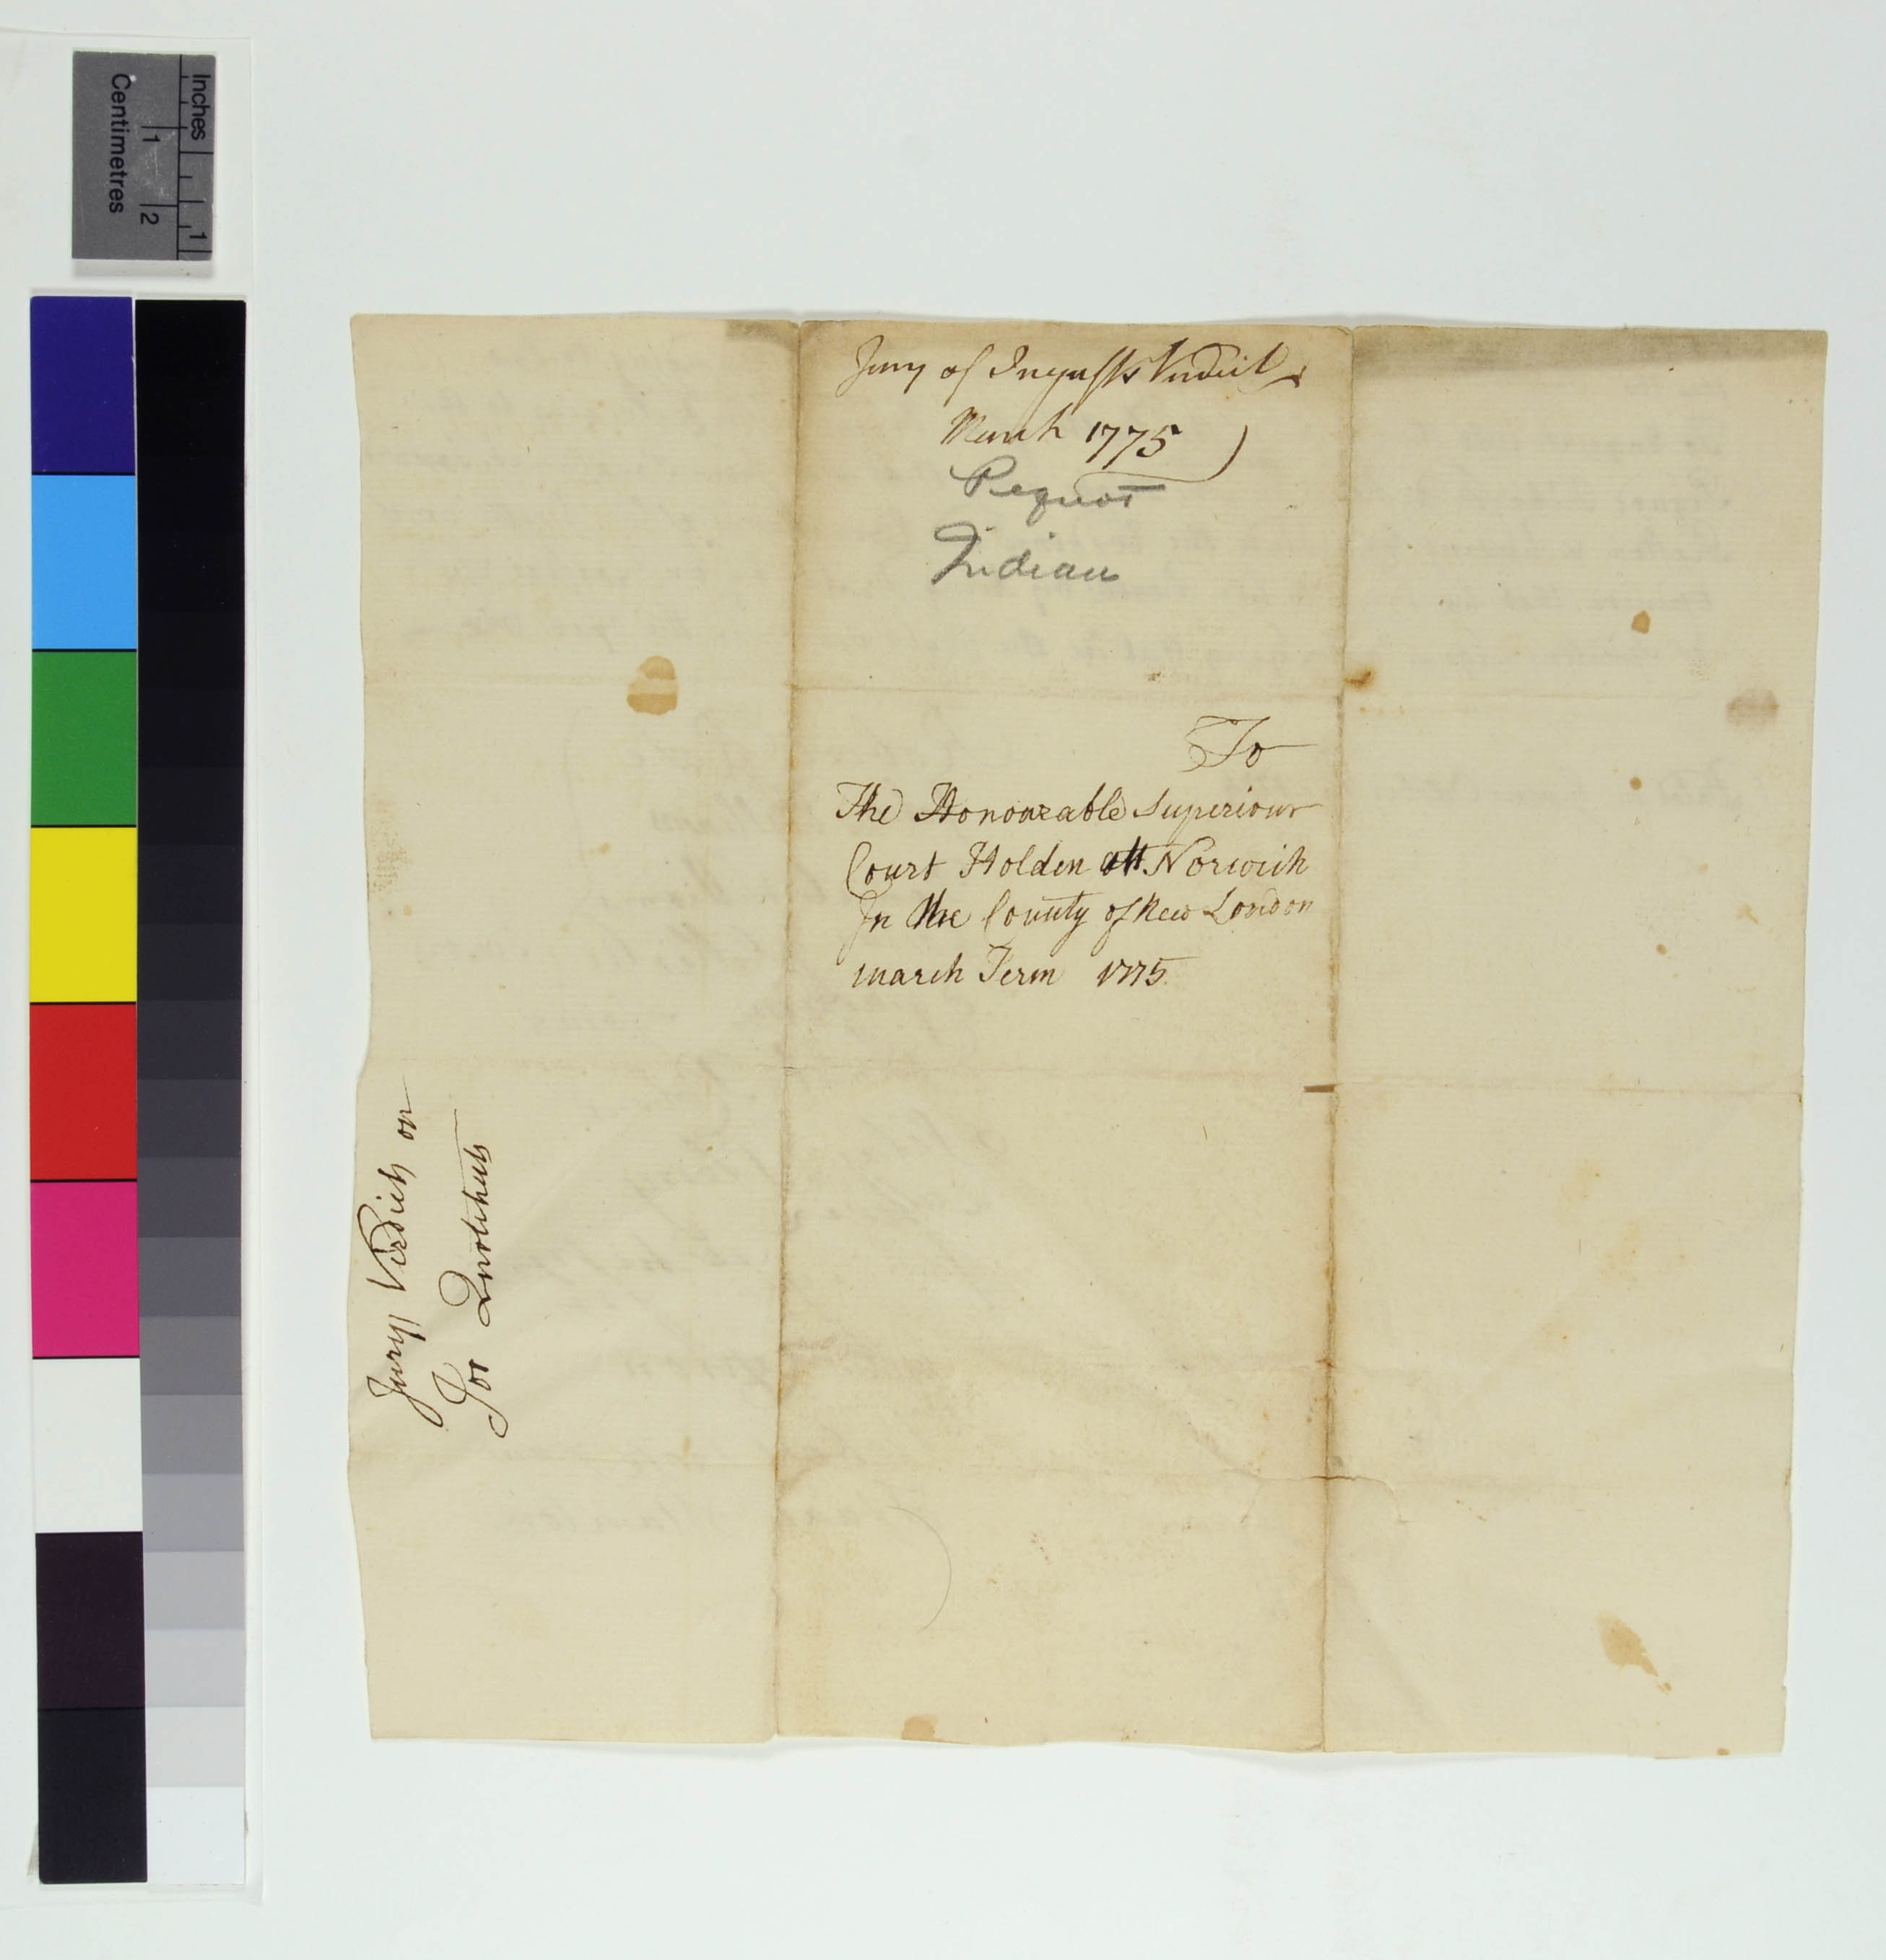 Inches
1
Centimetres
1 2
Jury of Inquests Verdict
March 1775
Pequot
Indian
To
The Honourable Superiour
Court Holden att Norwich
In the County of New London
march Term 1775
Jurys Verdict on
Joe